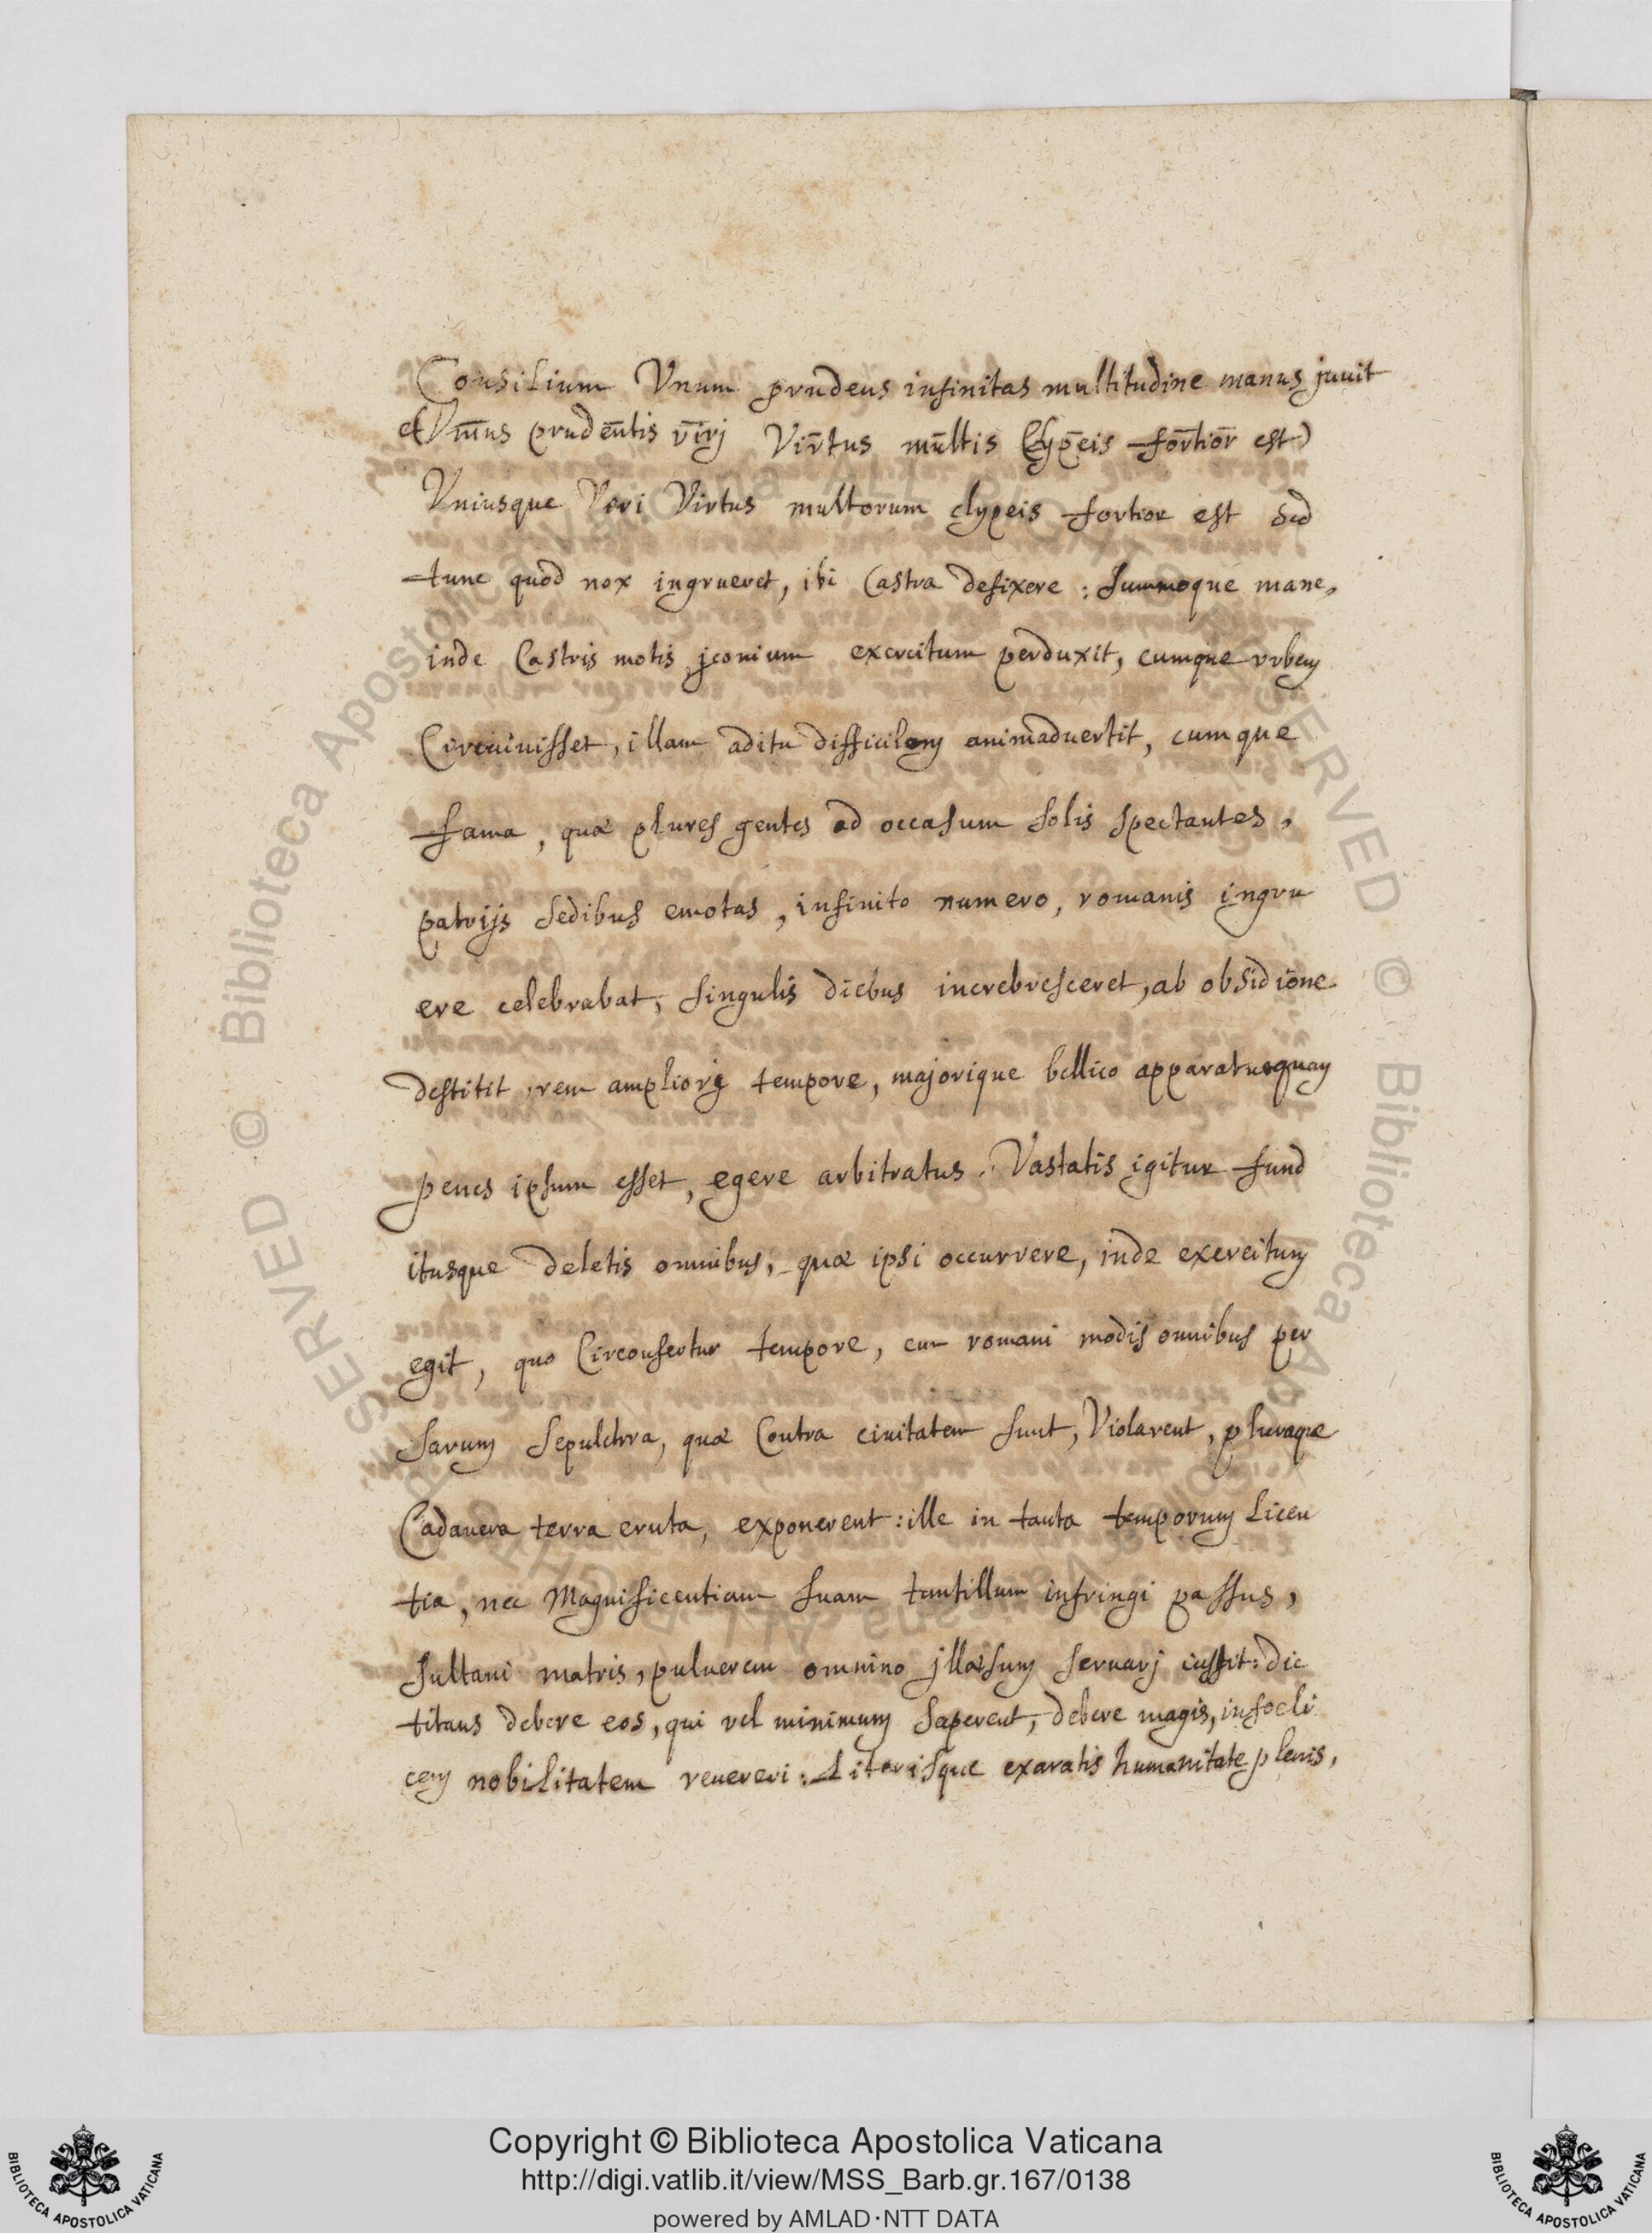 Consilium Vnum prudens infinitas multitudine manus juuit
et Vnus prudentis viri Virtus multis Clypeis fortior est)
Vniusque Veri Virtus multorum clypeis fortior est Sed
tunc quod nox ingrueret, ibi Castra defixere : Summoque mane,
inde Castris motis jconium exercitum perduxit, cumque vrbem
Circuiuisset, illam aditu difficilem animaduertit, cumque
fama, quæ plures gentes ad occasum Solis Spectantes,
patrijs Sedibus emotas, infinito numero, romanis ingru
ere celebrabat, Singulis diebus increbresceret, ab obsidione
destitit, rem ampliorj tempore, majorique bellico apparatu quam
penes ipsum esset, egere arbitratus. Vastatis igitur fund
itusque deletis omnibus, quæ ipsi occurrere, inde exercitum
egit, quo Circonfertur tempore, cum romani modis omnibus per
Sarum Sepulchra, quæ Contra ciuitatem Sunt, Violarent, pluraque
Cadauera terra eruta, exponerent : ille in tanta temporum Licen
tia, nec Magnificentiam Suam tantillum infringi passus,
Sultani matris, puluerem omnino jllæsum Seruarj iussit: dic
titans debere eos, qui vel minimum Saperent, debere magis, infœli
cem nobilitatem reuereri : Literisque exaratis humanitate plenis,
© Biblioteca Apostolica Vaticana ALL RIGHTS RESERVED
© Biblioteca Apostolica Vaticana ALL RIGHTS RESERVED
Copyright © Biblioteca Apostolica Vaticana
http://digi.vatlib.it/view/MSS_Barb.gr.167/0138
powered by AMLAD·NTT DATA
BIBLIOTECA APOSTOLICA VATICANA
BIBLIOTECA APOSTOLICA VATICANA